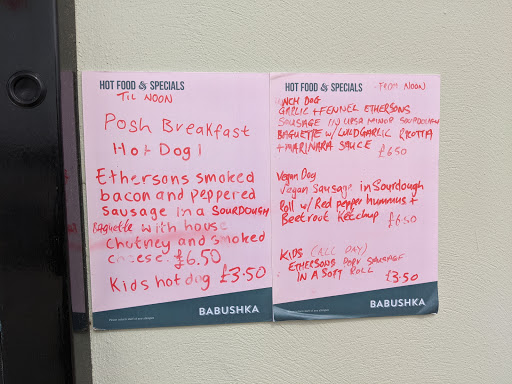 HOT FOOD & SPECIALS
TIL NOON
Posh Breakfast
Hot Dog!
Ethersons smoked
bacon and peppered
sausage in a SOURDOUGH
Baguette with house
chutney and smoked
cheese. £6.50
Kids hot dog £3.50
BABUSHKA
HOT FOOD & SPECIALS - FROM NOON
LUNCH DOG
GARLIC + FENNEL ETHERSONS
SAUSAGE IN URSA MINOR SOURDOUGH
BAGUETTE W/ WILD GARLIC RICOTTA
+ MARINARA SAUCE £6.50
Vegan Dog
Vegan Sausage in Sourdough
Roll w/ Red pepper hummus +
Beetroot Ketchup £6.50
KIDS (ALL DAY)
ETHERSONS PORK SAUSAGE
IN A SOFT ROLL £3.50
BABUSHKA